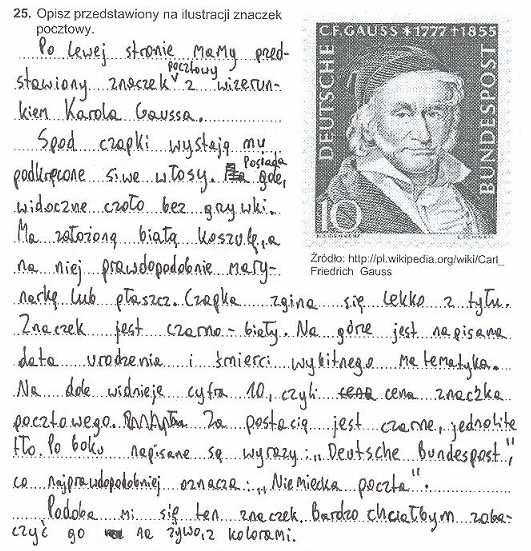 25. Opisz przedstawiony na ilustracji znaczek
pocztowy.
Po lewej stronie mamy przed-
stawiony znaczek pocztowy z wizerun-
kiem Karola Gaussa.
Spod czapki wystają mu
podkręcone siwe włosy. Posiada gołe,
widoczne czoło bez grzywki.
Ma założoną białą koszulę, a
na niej prawdopodobnie mary-
narkę lub płaszcz. Czapka zgina się lekko z tyłu.
Znaczek jest czarno-biały. Na górze jest napisana
data urodzenia i śmierci wybitnego matematyka.
Na dole widnieje cyfra 10, czyli cena znaczka
pocztowego. Za postacią jest czarne, jednolite
tło. Po boku napisane są wyrazy: „Deutsche Bundespost",
co najprawdopodobniej oznacza: „Niemiecka poczta".
Podoba mi się ten znaczek. Bardzo chciałbym zoba-
czyć go na żywo, z kolorami.
C.F. GAUSS * 1777 + 1855
DEUTSCHE
BUNDESPOST
10
Źródło: http://pl.wikipedia.org/wiki/Carl_
Friedrich_Gauss